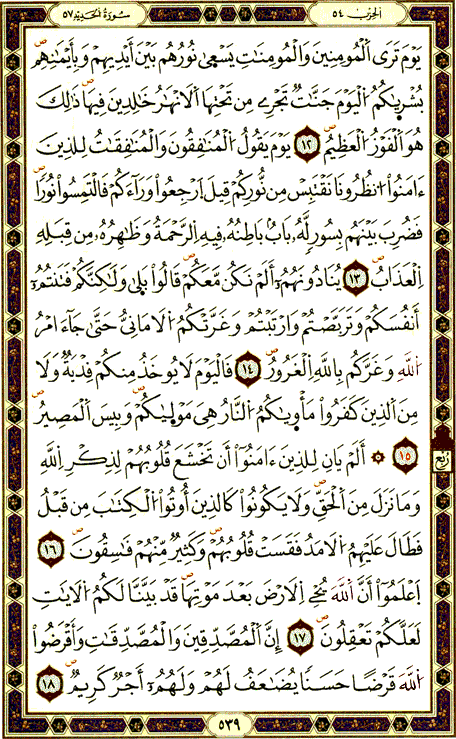 سُورَةُ الْحَدِيدِ ٥٧
الحِزْبُ ٥٤
يَوْمَ تَرَى اَ۬لْمُومِنِينَ وَالْمُومِنَٰتِ يَسْع۪يٰ نُورُهُم بَيْنَ أَيْدِيهِمْ وَبِأَيْمَٰنِهِم
بُشْر۪يٰكُمُ اُ۬لْيَوْمَ جَنَّٰتٞ تَجْرِے مِن تَحْتِهَا اَ۬لَانْهَٰرُ خَٰلِدِينَ فِيهَا ذَٰلِكَ
هُوَ اَ۬لْفَوْزُ اُ۬لْعَظِيمُ ١٢ يَوْمَ يَقُولُ اُ۬لْمُنَٰفِقُونَ وَالْمُنَٰفِقَٰتُ لِلذِينَ
ءَامَنُواْ اُ۟نظُرُونَا نَقْتَبِسْ مِن نُّورِكُمْ قِيلَ اَ۪رْجِعُواْ وَرَآءَكُمْ فَالْتَمِسُواْ نُوراٗ
فَضُرِبَ بَيْنَهُم بِسُورٖ لَّهُۥ بَابُۢ بَاطِنُهُۥ فِيهِ اِ۬لرَّحْمَةُ وَظَٰهِرُهُۥ مِن قِبَلِهِ
اِ۬لْعَذَابُ ١٣ يُنَادُونَهُمُۥٓ أَلَمْ نَكُن مَّعَكُمْ قَالُواْ بَل۪يٰ وَلَٰكِنَّكُمْ فَتَنتُمُۥٓ
أَنفُسَكُمْ وَتَرَبَّصْتُمْ وَارْتَبْتُمْ وَغَرَّتْكُمُ اُ۬لَامَانِيُّ حَتَّىٰ جَآءَ امْرُ
اُ۬للَّهِ وَغَرَّكُم بِاللَّهِ اِ۬لْغَرُورُ ١٤ فَالْيَوْمَ لَا يُوخَذُ مِنكُمْ فِدْيَةٞ وَلَا
مِنَ اَ۬لذِينَ كَفَرُواْ مَأْو۪يٰكُمُ اُ۬لنَّارُ هِيَ مَوْل۪يٰكُمْ وَبِيسَ اَ۬لْمَصِيرُ
١٥ ۞ أَلَمْ يَانِ لِلذِينَ ءَامَنُوٓاْ أَن تَخْشَعَ قُلُوبُهُمْ لِذِكْرِ اِ۬للَّهِ
رُبُع
وَمَا نَزَلَ مِنَ اَ۬لْحَقِّ وَلَا يَكُونُواْ كَالذِينَ أُوتُواْ اُ۬لْكِتَٰبَ مِن قَبْلُ
فَطَالَ عَلَيْهِمُ اُ۬لَامَدُ فَقَسَتْ قُلُوبُهُمْ وَكَثِيرٞ مِّنْهُمْ فَٰسِقُونَ ١٦
اَ۪عْلَمُوٓاْ أَنَّ اَ۬للَّهَ يُحْيِ اِ۬لَارْضَ بَعْدَ مَوْتِهَا قَدْ بَيَّنَّا لَكُمُ اُ۬لَايَٰتِ
لَعَلَّكُمْ تَعْقِلُونَ ١٧ إِنَّ اَ۬لْمُصَّدِّقِينَ وَالْمُصَّدِّقَٰتِ وَأَقْرَضُواْ
اُ۬للَّهَ قَرْضاً حَسَناٗ يُضَٰعَفُ لَهُمْ وَلَهُمُۥٓ أَجْرٞ كَرِيمٞ ١٨
٥٣٩